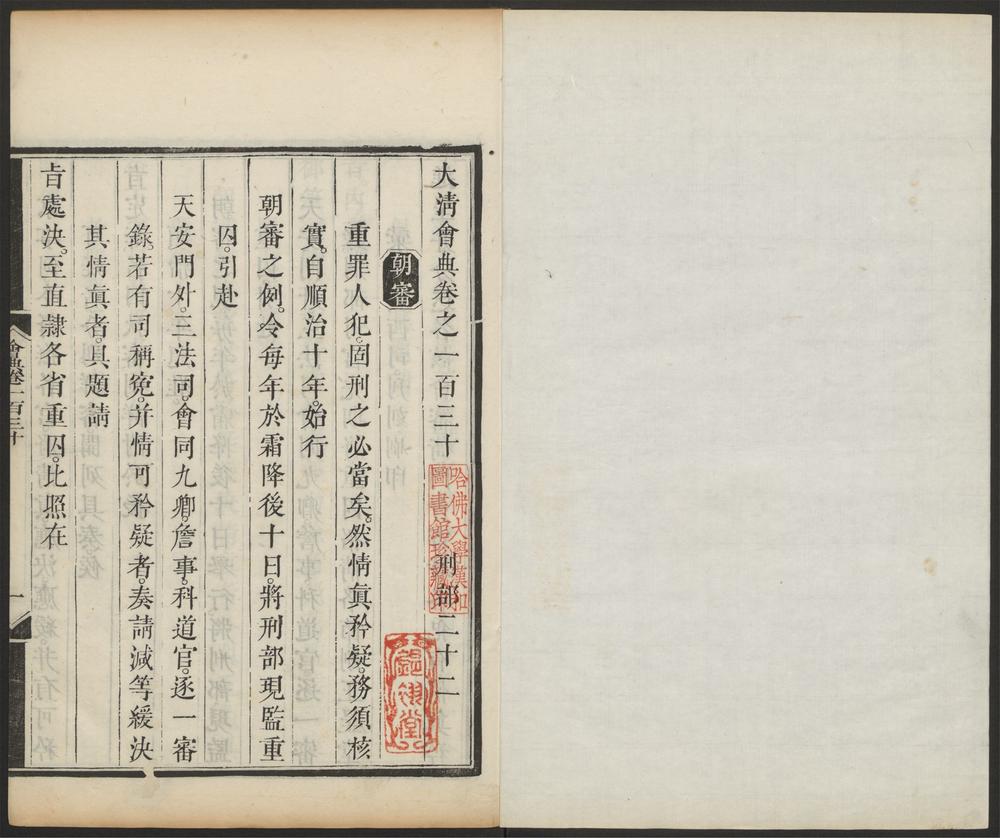 大清會典卷之一百三十　刑部二十二
朝審
重罪人犯。固刑之必當矣。然情眞矜疑。務須核
實。自順治十年。始行
朝審之例。今每年於霜降後十日。將刑部現監重
囚。引赴
天安門外。三法司。會同九卿。詹事。科道官。逐一審
錄。若有司稱寃。并情可矜疑者。奏請減等緩決
其情眞者。具題請
㫖處決。至直隷各省重囚。比照在
會典卷一百三十
一
哈佛大學漢和
圖書館珍藏印